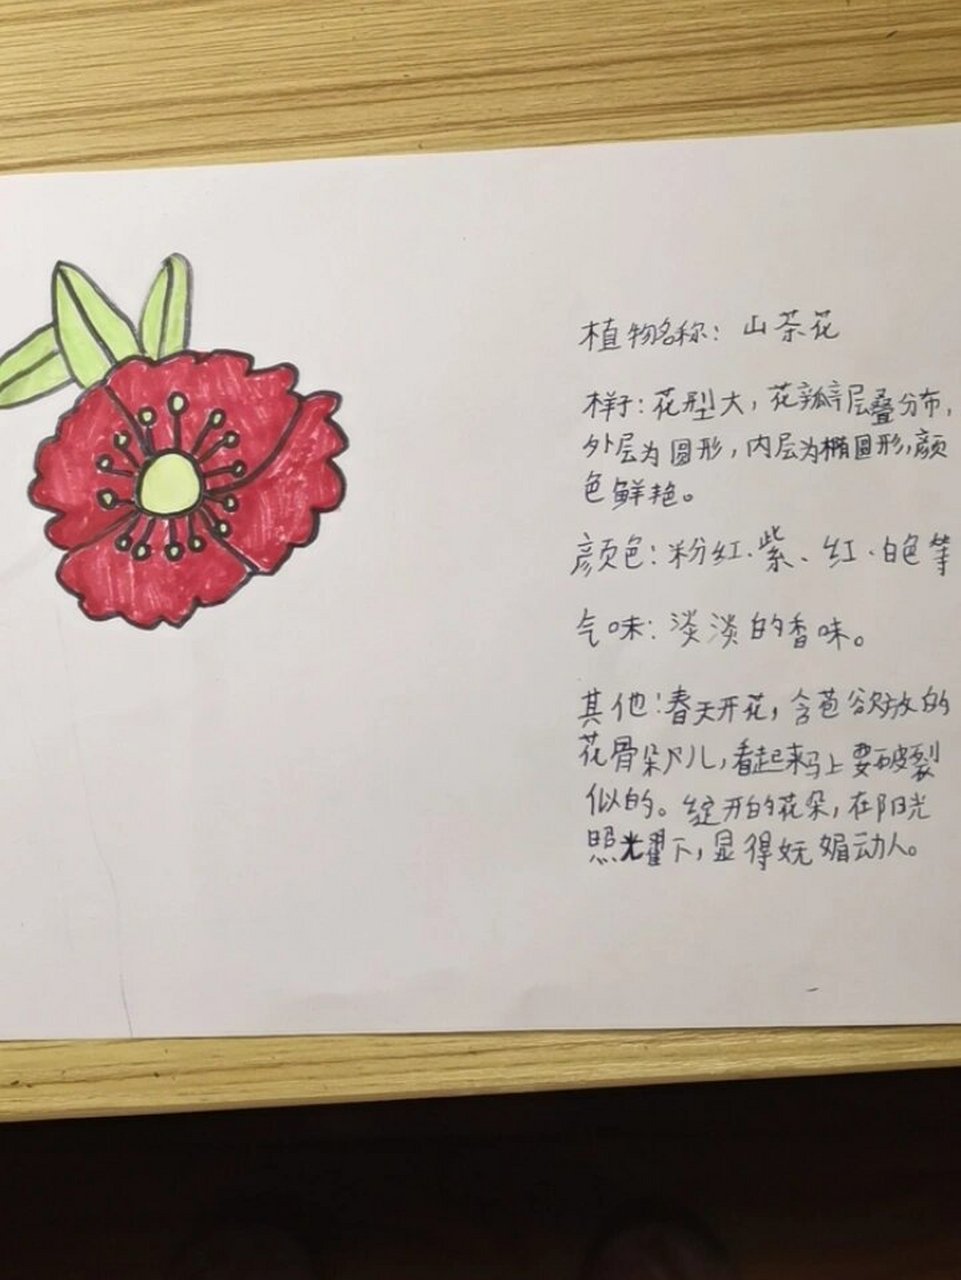 植物名称：山茶花
样子：花型大，花瓣层叠分布，
外层为圆形，内层为椭圆形，颜
色鲜艳。
颜色：粉红、紫、红、白色等
气味：淡淡的香味。
其他：春天开花，含苞欲放的
花骨朵儿，看起来马上要破裂
似的。绽开的花朵，在阳光
照光耀下，显得妩媚动人。